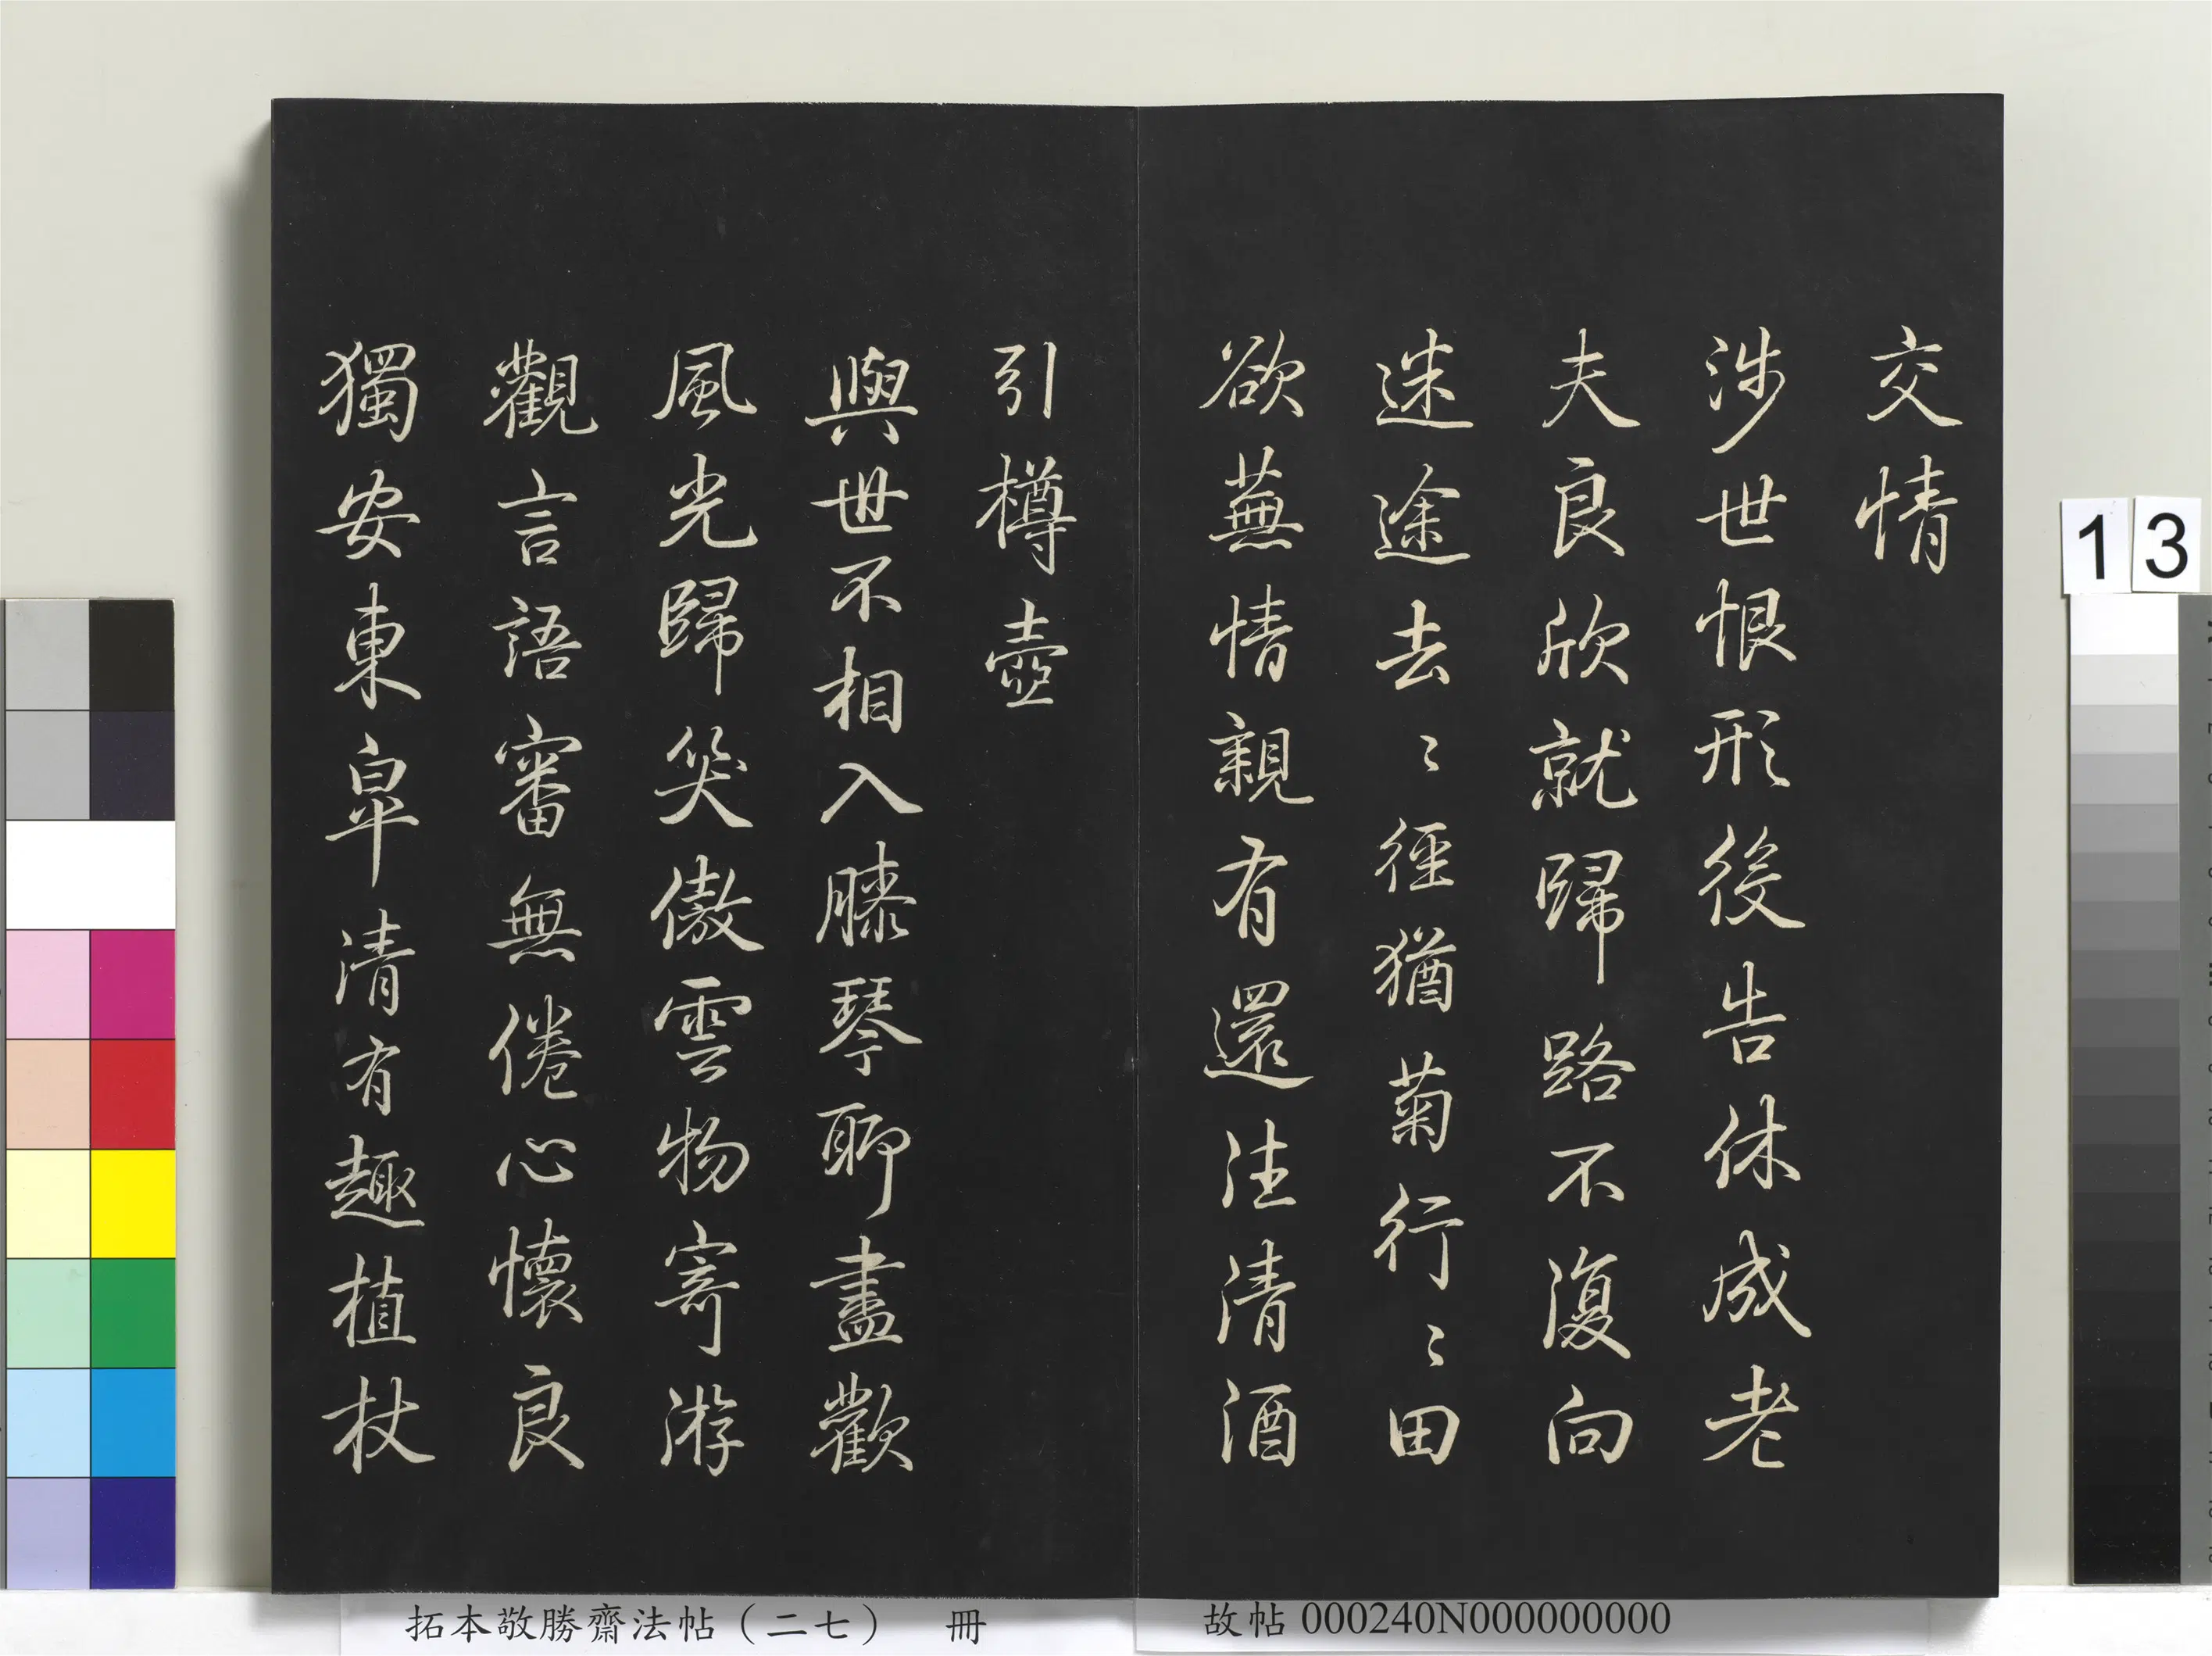 交情
涉世恨形役告休成老
夫良欣就歸路不復向
迷途去〻徑猶菊行〻田
欲蕪情親有還往清酒
引樽壺
與世不相入膝琴聊盡歡
風光歸笑傲雲物寄游
觀言語審無倦心懷良
獨安東皋清有趣植杖
13
拓本敬勝齋法帖（二七） 冊
故帖 000240N000000000